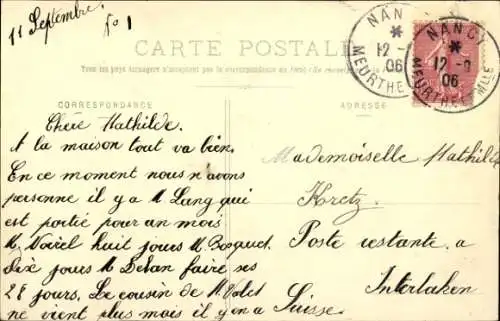 11 Septembre.
No 1
CARTE POSTALE
Tous les pays étrangers n'acceptent pas la correspondance au recto
CORRESPONDANCE
ADRESSE
NANCY
12 - 9
06
MEURTHE
NANCY
12 - 9
06
MEURTHE ET MLLE
Chère Mathilde.
A la maison tout va bien.
En ce moment nous n'avons
personne il y a M Lang qui
est partie pour un mois
M. huit jours M. Bosquet
dix jours M Detan faire ses
28 jours. Le cousin de M.
ne vient plus mais il y a
Mademoiselle Mathilde
Kretz.
Poste restante. a
Interlaken
Suisse.